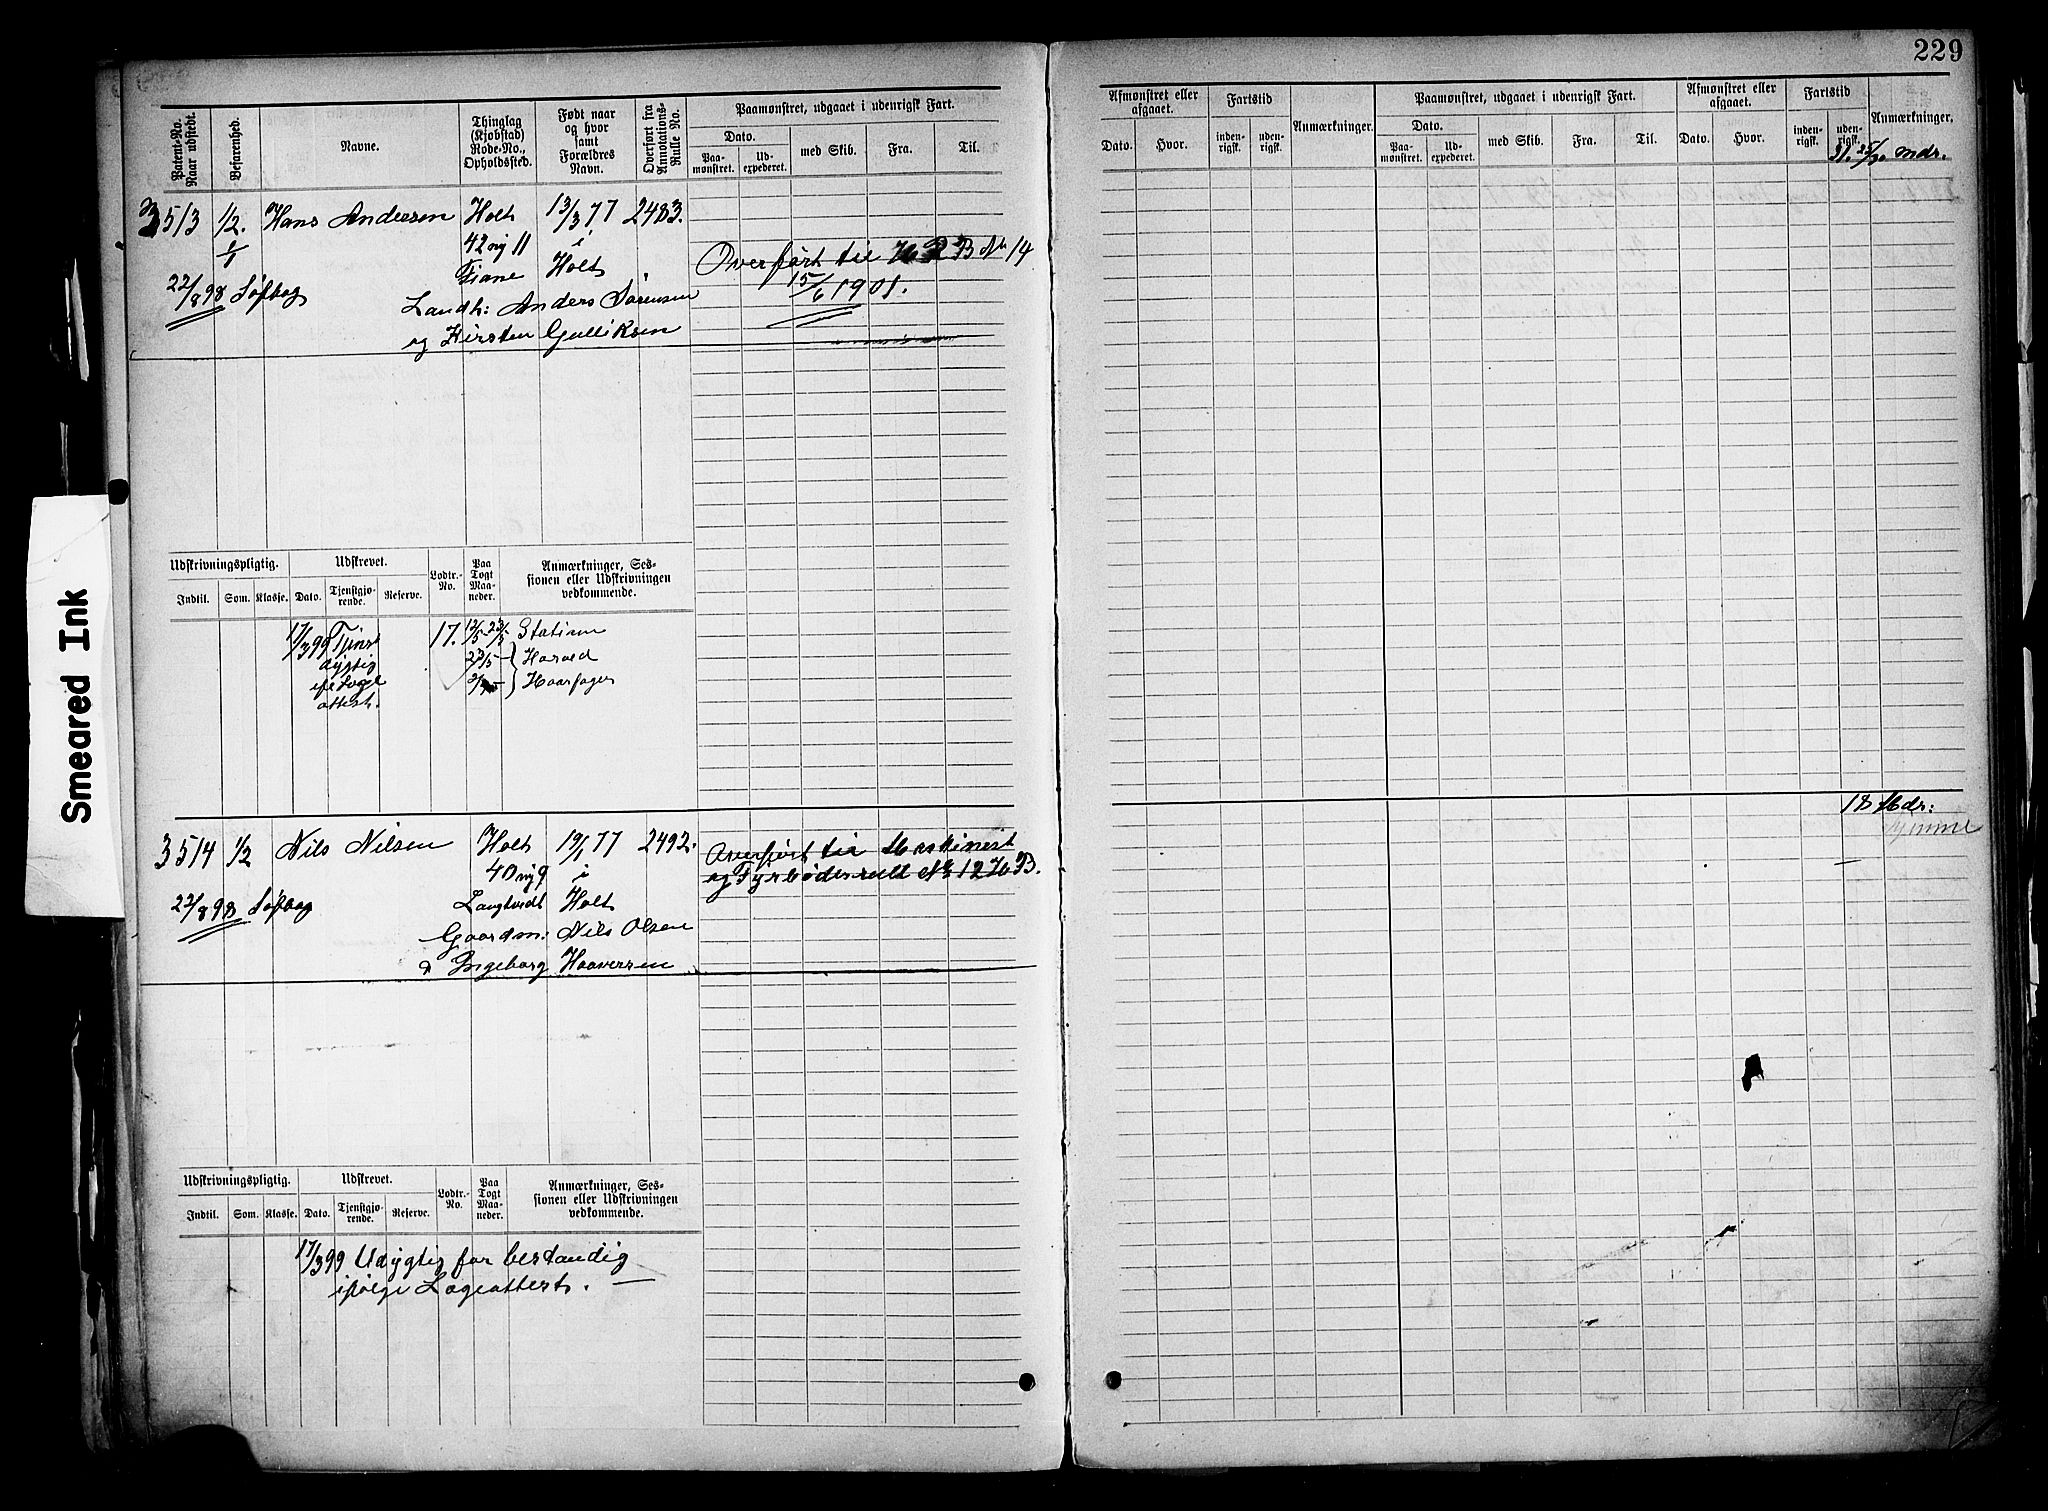 229
Patent-No. Naar udstedt.
Befarenhed.
Navne.
Thinglag (Kjøbstad) Rode-No., Opholdssted.
Født naar og hvor samt Forældres Navn.
Overført fra Annotations-Rulle No.
Paamønstret, udgaaet i udenrigsk Fart.
Dato.
Paamønstret.
Udexpederet.
med Skib.
Fra.
Til.
3513 1/2. Hans Andersen Holt 13/3 77 2483.
1/1 42 ny 11 i
Fiane Holt
22/8 98 Søfbog
Landh: Anders Sørensen
og Kirsten Gulliksen
Overført til H R B No 14
15/6 1901.
Udskrivningspligtig.
Udskrevet.
Lodtr.-No.
Paa Togt Maaneder.
Anmærkninger, Sessionen eller Udskrivningen vedkommende.
Indtil. Som. Klasse. Dato. Tjenstgjørende. Reserve.
17/3 99 Tjenst 17. 12/5-23/5 Station
dygtig 23/5 Harald
attest. Haarfager
3514 1/2 Nils Nilsen Holt 19/1 77 2492.
40 ny 9 i
22/8 98 Søfbog Langtvedt Holt
Gaardm: Nils Olsen
& Ingeborg Haaversen
Overført til Maskinist
og Fyrbøderrulle No 12 H B.
Udskrivningspligtig.
Udskrevet.
Lodtr.-No.
Paa Togt Maaneder.
Anmærkninger, Sessionen eller Udskrivningen vedkommende.
Indtil. Som. Klasse. Dato. Tjenstgjørende. Reserve.
17/3 99 Udygtig for bestandig
ifølge Lægeattest.
Afmønstret eller afgaaet.
Dato. Hvor.
Fartstid
indenrigsk. udenrigsk.
Anmærkninger.
Paamønstret, udgaaet i udenrigsk Fart.
Dato.
Paamønstret. Udexpederet.
med Skib. Fra. Til.
Afmønstret eller afgaaet.
Dato. Hvor.
Fartstid
indenrigsk. udenrigsk.
Anmærkninger.
31 25/30 mdr.
18 Mdr:
hjemme
Smeared Ink